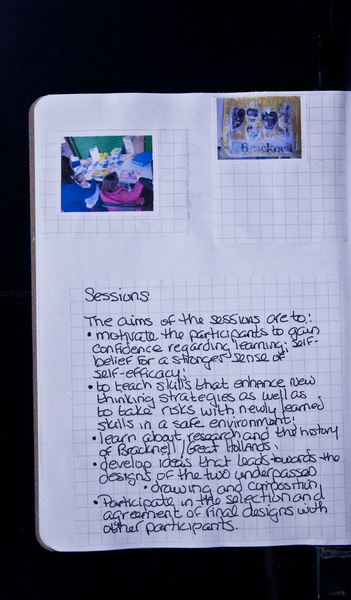 Bracknell
Sessions
The aims of the sessions are to:
• motivate the participants to gain
confidence regarding learning; self-
belief for a stronger sense of
self-efficacy;
• to teach skills that enhance new
thinking strategies as well as
to take risks with newly learned
skills in a safe environment;
• learn about research and the history
of Bracknell / Great Hollands;
• develop ideas that leads towards the
designs of the two underpasses
• drawing and composition;
• Participate in the selection and
agreement of final designs with
other participants.